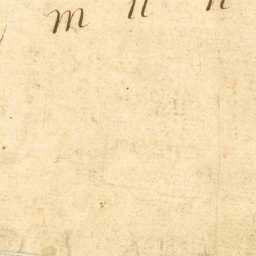 m n n